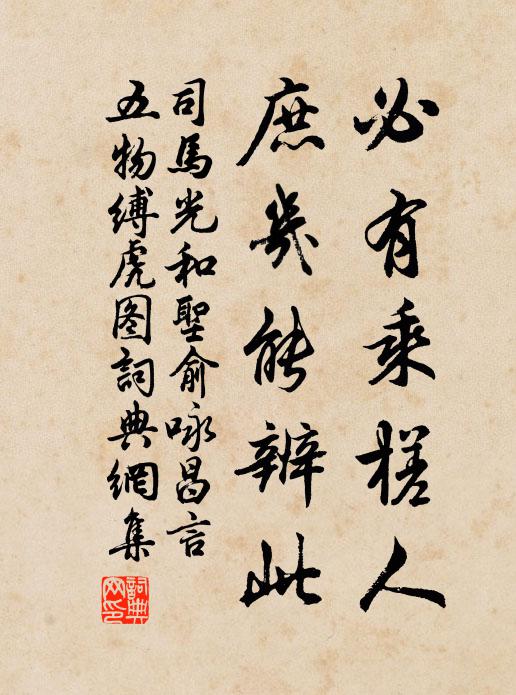 必有乘槎人
庶幾能辨此
司馬光和聖俞咏昌言
五物縛虎图詞典網集
詞典网印